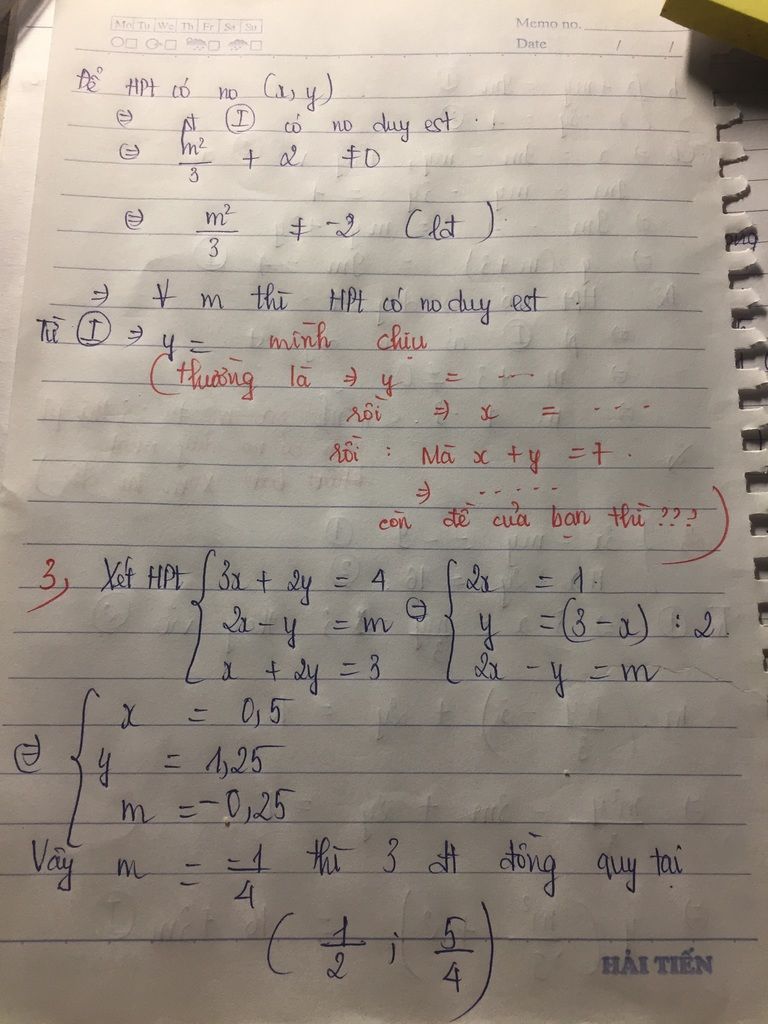 Mo Tu We Th Fr Sa Su
Memo no.
Date / /
Để HPt có no (x, y)
⇔ pt Ⓘ có no duy est.
⇔ m²/3 + 2 ≠ 0
⇔ m²/3 ≠ -2 (lđ)
⇒ ∀ m thì HPt có no duy est.
Từ Ⓘ ⇒ y = mình chịu
(thường là ⇒ y = ....
rồi ⇒ x = ....
rồi : Mà x + y = 7.
⇒ ......
còn đề của bạn thì ???)
3, Xét HPt { 3x + 2y = 4 ⇔ { 2x = 1.
2x - y = m y = (3 - x) : 2.
x + 2y = 3 2x - y = m
⇔ { x = 0,5
y = 1,25
m = -0,25
Vậy m = -1/4 thì 3 đt đồng quy tại
( 1/2 ; 5/4 )
HẢI TIẾN